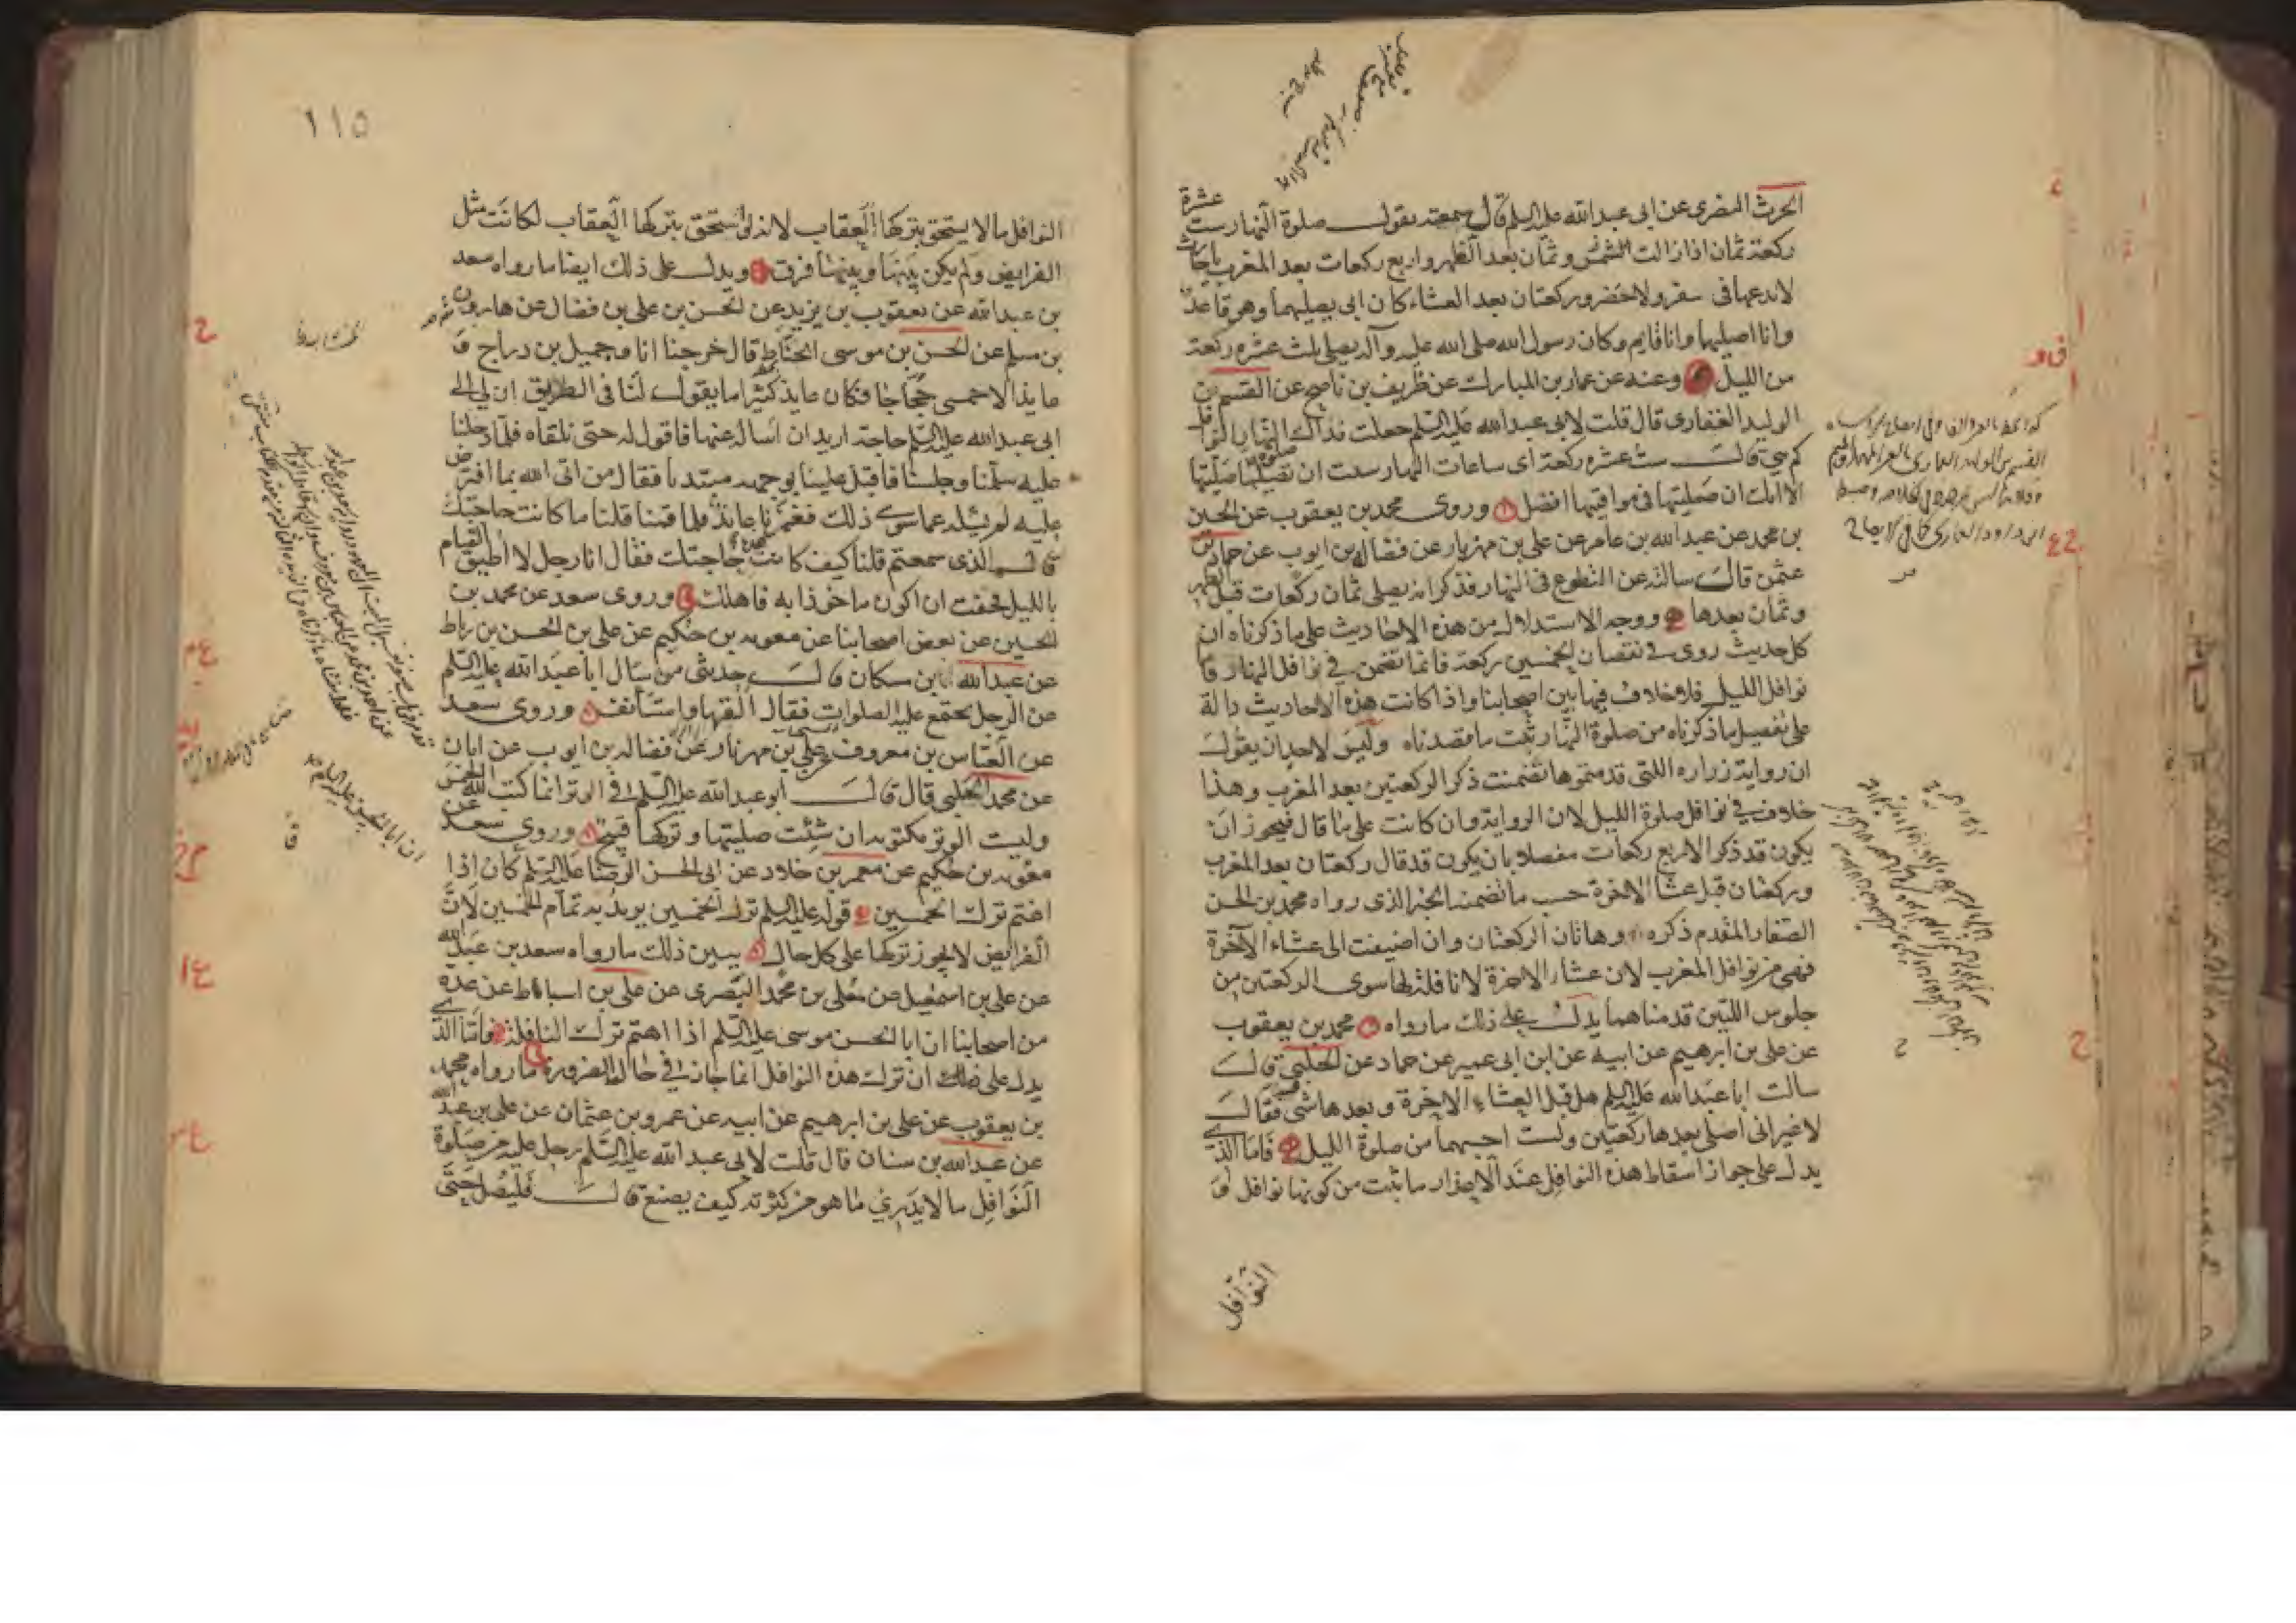 الحرث المضرى عن ابى عبد الله عليه السلم قال سمعته يقول صلوة النهار ست عشرة
ركعة ثمان اذا زالت الشمس وثمان بعد الظهر واربع ركعات بعد المغرب يا حارث
لا تدعها فى سفر ولا حضر وركعتان بعد العشاء كان ابى يصليهما وهو قاعد
وانا اصليهما وانا قايم وكان رسول الله صلى الله عليه وآله يصلى ثلث عشره ركعة
من الليل وعنه عن عمار بن المبارك عن ظريف بن ناصح عن القسم بن
الوليد الغفارى قال قلت لابى عبد الله عليه السلم جعلت فداك صلوة النهار النوافل
كم هى قال ست عشره ركعة اى ساعات النهار شئت ان تصليها صليتها
الا انك ان صليتها فى مواقيتها افضل وروى محمد بن يعقوب عن الحسين
بن محمد عن عبد الله بن عامر عن على بن مهزيار عن فضالة بن ايوب عن حماد بن
عثمن قال سالته عن التطوع فى النهار فذكر انه يصلى ثمان ركعات قبل الظهر
وثمان بعدها ووجه الاستدلال من هذه الاحاديث على ما ذكرناه ان
كل حديث روى فى نقصان الخمسين ركعة فانما تضمن فى نوافل النهار فا
نوافل الليل فلا خلاف فيها بين اصحابنا واذا كانت هذه الاحاديث دالة
على تفصيل ما ذكرناه من صلوة النهار ثبت ما قصدناه وليس لاحد ان يقول
ان رواية زراره اللتى قدمتموها تضمنت ذكر الركعتين بعد المغرب وهذا
خلاف فى نوافل صلوة الليل لان الرواية وان كانت على ما قال فيجوز ان
يكون قد ذكر الاربع ركعات مفصلا بان يكون قد قال ركعتان بعد المغرب
وركعتان قبل عشا الاخرة حسب ما تضمنه الخبر الذى رواه محمد بن الحسن
الصفار المتقدم ذكره وهاتان الركعتان وان اضيفت الى عشاء الآخرة
فهى من نوافل المغرب لان عشاء الاخرة لا نافلة لها سوى الركعتين من
جلوس اللتين قدمناهما يدل على ذلك ما رواه محمد بن يعقوب
عن على بن ابرهيم عن ابيه عن ابن ابى عمير عن حماد عن الحلبى قال
سالت ابا عبد الله عليه السلم هل قبل العشاء الاخرة وبعدها شى فقال
لا غير انى اصلى بعدها ركعتين ولست احسبهما من صلوة الليل فاما الذى
يدل على جواز اسقاط هذه النوافل عند الاعذار ما ثبت من كونها نوافل و
النوافل
١١٥
النوافل ما لا يستحق بتركها العقاب لانه لو استحق بتركها العقاب لكانت مثل
الفرايض ولم يكن بينها وبينها فرق ويدل على ذلك ايضا ما رواه سعد
بن عبد الله عن يعقوب بن يزيد عن الحسن بن على بن فضال عن هارون
بن مسلم عن الحسن بن موسى الحناط قال خرجنا انا وجميل بن دراج و
عايذ الاحمسى حجاجا فكان عايذ كثيرا ما يقول لنا فى الطريق ان لى الى
ابى عبد الله عليه السلم حاجة اريد ان اساله عنها فاقول له حتى نلقاه فلما دخلنا
عليه سلمنا وجلسنا فاقبل علينا بوجهه مبتديا فقال من اتى الله بما افترض
عليه لم يسئله عما سوى ذلك فغمزنا عايذ فلما قمنا قلنا ما كانت حاجتك
قال الذى سمعتم قلنا كيف كانت هذه حاجتك فقال انا رجل لا اطيق القيام
بالليل فخفت ان اكون ماخوذا به فاهلك وروى سعد عن محمد بن
الحسين عن بعض اصحابنا عن معوية بن حكيم عن على بن الحسن بن رباط
عن عبد الله بن مسكان قال حدثنى من سال ابا عبد الله عليه السلم
عن الرجل تجتمع عليه الصلوات فقال القها واستأنف وروى سعد
عن العباس بن معروف عن على بن مهزيار عن فضالة بن ايوب عن ابان
عن محمد الحلبى قال قال ابو عبد الله عليه السلم فى الوتر انما كتب الله الخمس
وليست الوتر مكتوبة ان شئت صليتها وتركها قبيح وروى سعد عن
معوية بن حكيم عن معمر بن خلاد عن ابى الحسن الرضا عليه السلم كان اذا
اغتم ترك الخمسين قوله عليه السلم ترك الخمسين يريد به تمام الخمسين لان
الفرايض لا يجوز تركها على كل حال يبين ذلك ما رواه سعد بن عبد الله
عن على بن اسمعيل عن معلى بن محمد البصرى عن على بن اسباط عن عدة
من اصحابنا ان ابا الحسن موسى عليه السلم اذا اهتم ترك النافلة فاما الذى
يدل على ذلك ان ترك هذه النوافل انما جاز فى حال الضرورة ما رواه محمد
بن يعقوب عن على بن ابرهيم عن ابيه عن عمرو بن عثمان عن على بن عبد الله
عن عبد الله بن سنان قال قلت لابى عبد الله عليه السلم رجل عليه من صلوة
النوافل ما لا يدرى ما هو من كثرته كيف يصنع قال فليصل حتى